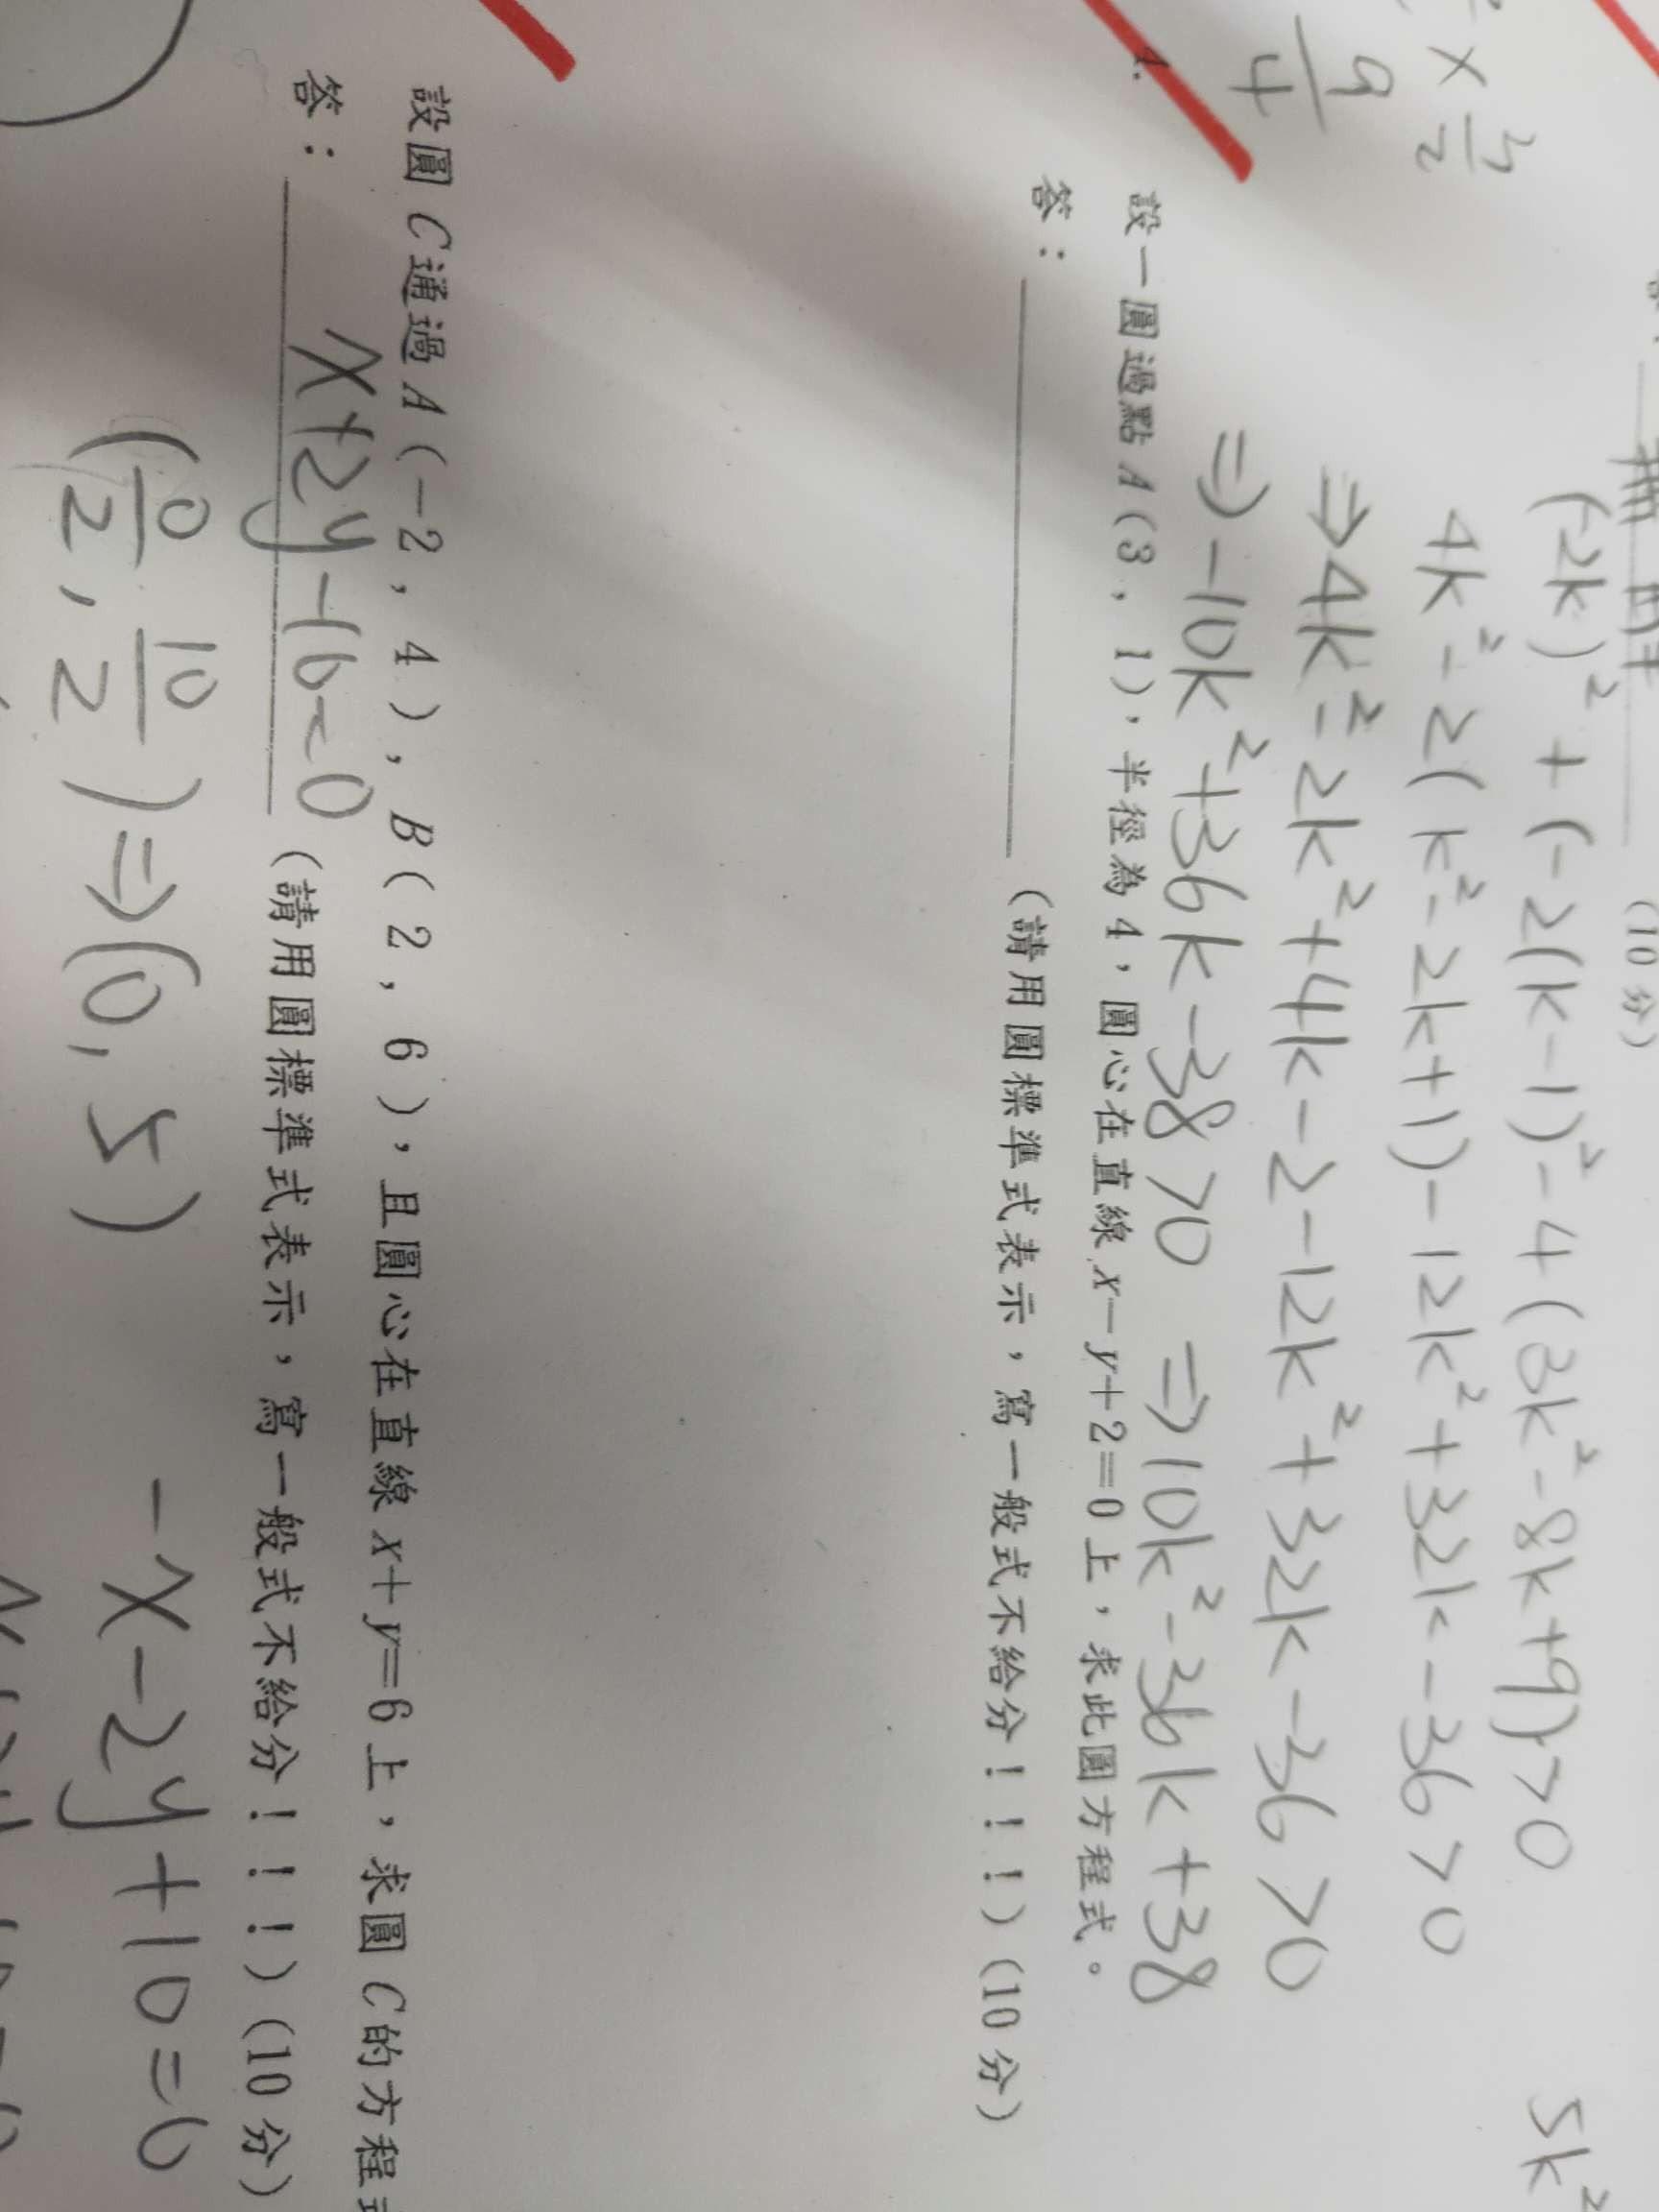 (10分)
(-2k)² + (-2(k-1)² - 4(3k² - 8k + 9) > 0
5k²
4k² - 2(k² - 2k + 1) - 12k² + 32k - 36 > 0
⇒ 4k² - 2k² + 4k - 2 - 12k² + 32k - 36 > 0
⇒ -10k² + 36k - 38 > 0 ⇒ 10k² - 36k + 38
9/4
設一圓過點 A(3,1),半徑為4,圓心在直線 x-y+2=0上,求此圓方程式。
答:(請用圓標準式表示,寫一般式不給分!!!)(10分)
設圓 C通過 A(-2,4),B(2,6),且圓心在直線 x+y=6上,求圓 C的方程
答:x+2y-16=0(請用圓標準式表示,寫一般式不給分!!!)(10分)
(0/2, 10/2) ⇒ (0, 5) -x-2y+10=0